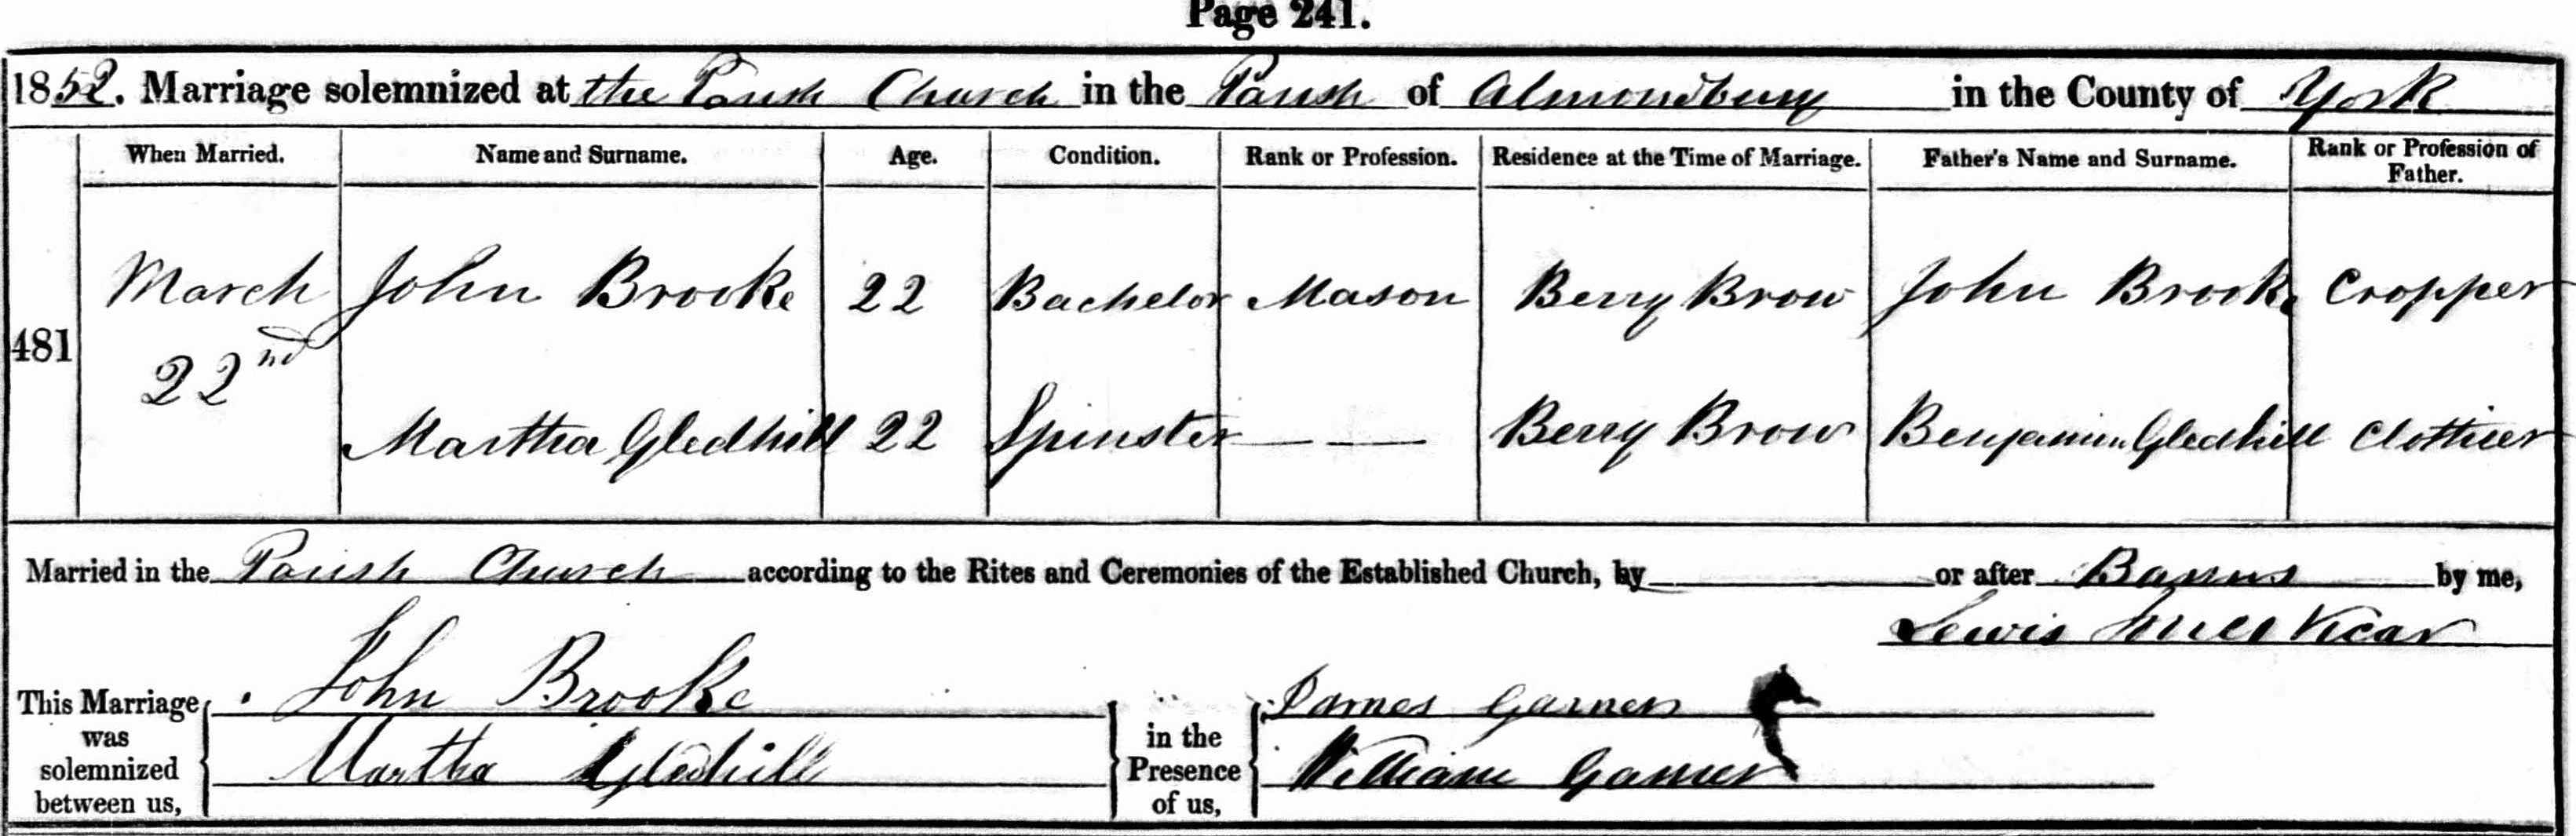 Page 241.
1852. Marriage solemnized at the Parish Church in the Parish of Almondbury in the County of York
When Married. Name and Surname. Age. Condition. Rank or Profession. Residence at the Time of Marriage. Father's Name and Surname. Rank or Profession of Father.
481 March 22nd John Brooke 22 Bachelor Mason Berry Brow John Brooke Cropper
Martha Gledhill 22 Spinster — — Berry Brow Benjamin Gledhill Clothier
Married in the Parish Church according to the Rites and Ceremonies of the Established Church, by or after Banns by me,
Lewis Vicar
This Marriage was solemnized between us, John Brooke
Martha Gledhill
in the Presence of us, James Garner
William Garner